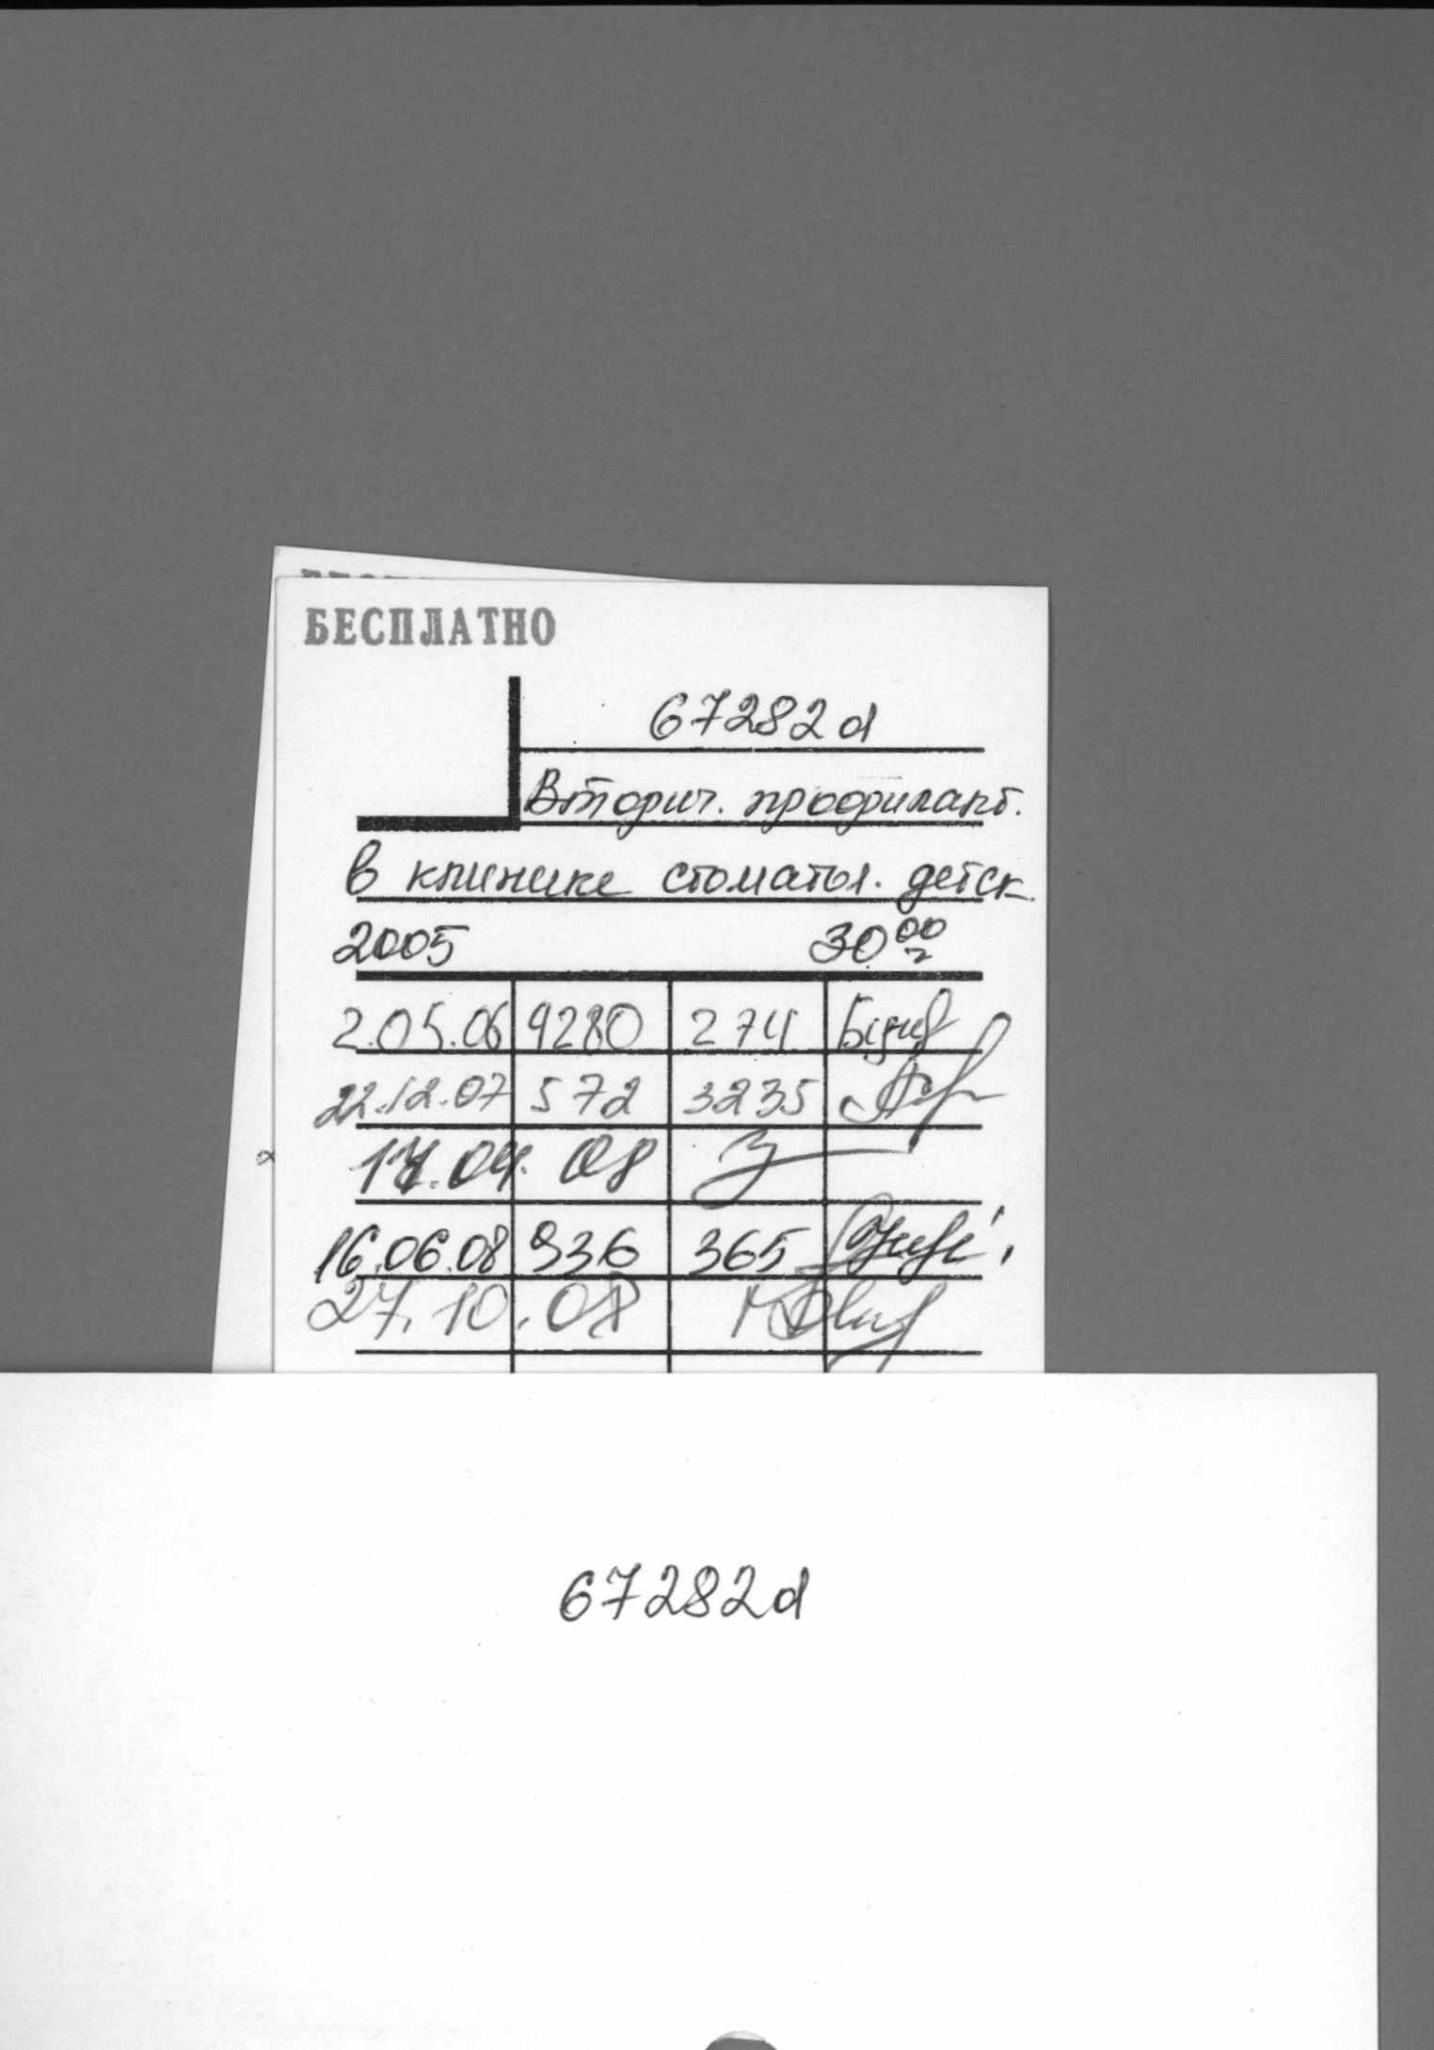 БЕСПЛАТНО
67282d
Вторич. профилакт.
в клинике стоматол. детск.
2005 30 00
2.05.06 9280 274
22.12.07 572 3235
17.04.08
16.06.08 936 365
27.10.08
67282d